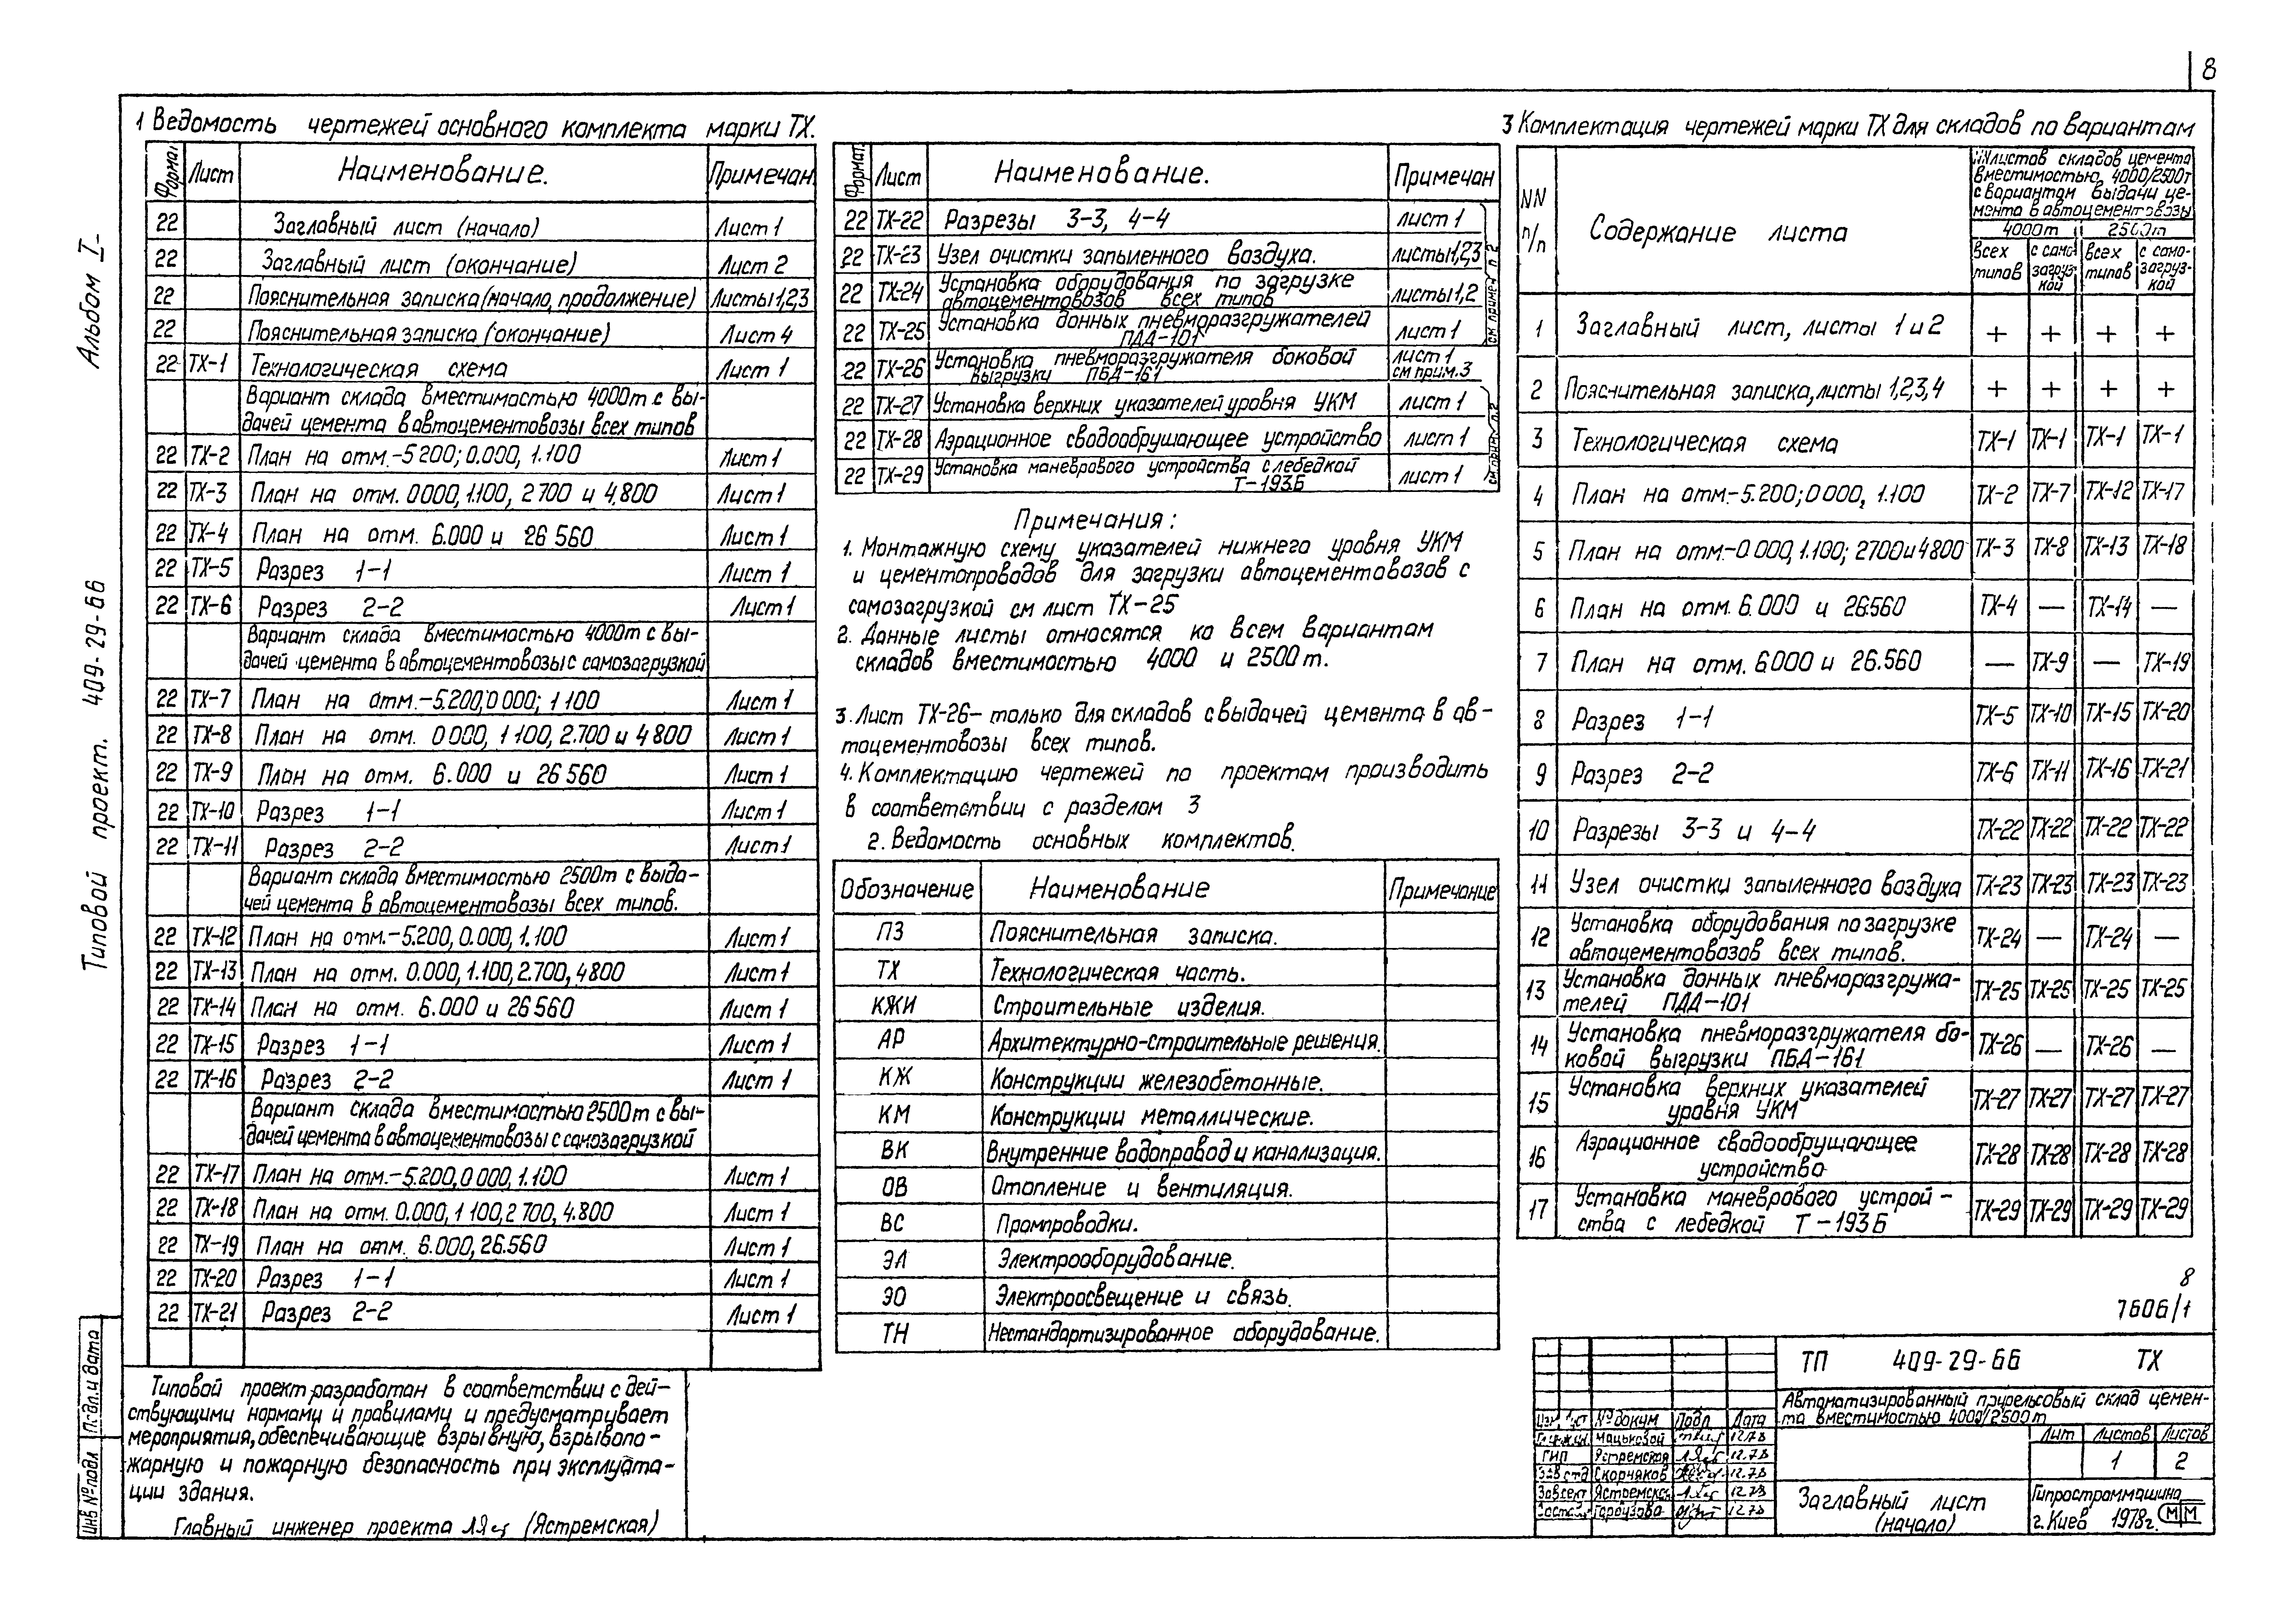 8
Альбом I
Типовой проект. 409-29-66
1 Ведомость чертежей основного комплекта марки ТХ.
Формат Лист Наименование. Примечан.
22 Заглавный лист (начало) Лист 1
22 Заглавный лист (окончание) Лист 2
22 Пояснительная записка (начало, продолжение) Листы 1,2,3
22 Пояснительная записка (окончание) Лист 4
22 ТХ-1 Технологическая схема Лист 1
Вариант склада вместимостью 4000т с вы-
дачей цемента в автоцементовозы всех типов
22 ТХ-2 План на отм.-5 200; 0.000, 1.100 Лист 1
22 ТХ-3 План на отм. 0 000, 1.100, 2 700 и 4.800 Лист 1
22 ТХ-4 План на отм. 6.000 и 26 560 Лист 1
22 ТХ-5 Разрез 1-1 Лист 1
22 ТХ-6 Разрез 2-2 Лист 1
Вариант склада вместимостью 4000т с вы-
дачей цемента в автоцементовозы с самозагрузкой
22 ТХ-7 План на отм.-5.200, 0 000; 1 100 Лист 1
22 ТХ-8 План на отм. 0 000, 1 100, 2.700 и 4 800 Лист 1
22 ТХ-9 План на отм. 6.000 и 26 560 Лист 1
22 ТХ-10 Разрез 1-1 Лист 1
22 ТХ-11 Разрез 2-2 Лист 1
Вариант склада вместимостью 2500т с выда-
чей цемента в автоцементовозы всех типов.
22 ТХ-12 План на отм.-5.200, 0.000, 1.100 Лист 1
22 ТХ-13 План на отм. 0.000, 1.100, 2.700, 4 800 Лист 1
22 ТХ-14 План на отм. 6.000 и 26 560 Лист 1
22 ТХ-15 Разрез 1-1 Лист 1
22 ТХ-16 Разрез 2-2 Лист 1
Вариант склада вместимостью 2500т с вы-
дачей цемента в автоцементовозы с самозагрузкой
22 ТХ-17 План на отм.-5.200, 0 000, 1.100 Лист 1
22 ТХ-18 План на отм. 0.000, 1 100, 2 700, 4.800 Лист 1
22 ТХ-19 План на отм. 6.000, 26.560 Лист 1
22 ТХ-20 Разрез 1-1 Лист 1
22 ТХ-21 Разрез 2-2 Лист 1
Типовой проект разработан в соответствии с дей-
ствующими нормами и правилами и предусматривает
мероприятия, обеспечивающие взрывную, взрывопо-
жарную и пожарную безопасность при эксплуата-
ции здания.
Главный инженер проекта (Ястремская)
Инв № подл Подп. и дата
Формат. Лист Наименование. Примечан
22 ТХ-22 Разрезы 3-3, 4-4 лист 1
22 ТХ-23 Узел очистки запыленного воздуха. листы 1,2,3
22 ТХ-24 Установка оборудования по загрузке
автоцементовозов всех типов листы 1,2
22 ТХ-25 Установка донных пневморазгружателей
ПДД-101 лист 1
см примеч п 2
22 ТХ-26 Установка пневморазгружателя боковой лист 1
выгрузки ПБД-161 см прим. 3
22 ТХ-27 Установка верхних указателей уровня УКМ лист 1
22 ТХ-28 Аэрационное сводообрушающее устройство лист 1
22 ТХ-29 Установка маневрового устройства с лебедкой
Т-193Б лист 1
см прим. п.2
Примечания:
1. Монтажную схему указателей нижнего уровня УКМ
и цементопроводов для загрузки автоцементовозов с
самозагрузкой см лист ТХ-25
2. Данные листы относятся ко всем вариантам
складов вместимостью 4000 и 2500т.
3. Лист ТХ-26- только для складов с выдачей цемента в ав-
тоцементовозы всех типов.
4. Комплектацию чертежей по проектам производить
в соответствии с разделом 3
2. Ведомость основных комплектов.
Обозначение Наименование Примечание
ПЗ Пояснительная записка.
ТХ Технологическая часть.
КЖИ Строительные изделия.
АР Архитектурно-строительные решения.
КЖ Конструкции железобетонные.
КМ Конструкции металлические.
ВК Внутренние водопровод и канализация.
ОВ Отопление и вентиляция.
ВС Промпроводки.
ЭЛ Электрооборудование.
ЭО Электроосвещение и связь.
ТН Нестандартизированное оборудование.
3 Комплектация чертежей марки ТХ для складов по вариантам
NN п/п Содержание листа
NN листов складов цемента
вместимостью, 4000/2500т
с вариантом выдачи це-
мента в автоцементовозы
4000т 2500т
всех типов с само загруз- кой всех типов с само- загруз- кой
1 Заглавный лист, листы 1 и 2 + + + +
2 Пояснительная записка, листы 1,2,3,4 + + + +
3 Технологическая схема ТХ-1 ТХ-1 ТХ-1 ТХ-1
4 План на отм-5.200; 0 000, 1.100 ТХ-2 ТХ-7 ТХ-12 ТХ-17
5 План на отм-0 000, 1.100; 2700 и 4 800 ТХ-3 ТХ-8 ТХ-13 ТХ-18
6 План на отм. 6.000 и 26.560 ТХ-4 — ТХ-14 —
7 План на отм. 6 000 и 26.560 — ТХ-9 — ТХ-19
8 Разрез 1-1 ТХ-5 ТХ-10 ТХ-15 ТХ-20
9 Разрез 2-2 ТХ-6 ТХ-11 ТХ-16 ТХ-21
10 Разрезы 3-3 и 4-4 ТХ-22 ТХ-22 ТХ-22 ТХ-22
11 Узел очистки запыленного воздуха ТХ-23 ТХ-23 ТХ-23 ТХ-23
12 Установка оборудования по загрузке
автоцементовозов всех типов. ТХ-24 — ТХ-24 —
13 Установка донных пневморазгружа-
телей ПДД-101 ТХ-25 ТХ-25 ТХ-25 ТХ-25
14 Установка пневморазгружателя бо-
ковой выгрузки ПБД-161 ТХ-26 — ТХ-26 —
15 Установка верхних указателей
уровня УКМ ТХ-27 ТХ-27 ТХ-27 ТХ-27
16 Аэрационное сводообрушающее
устройство ТХ-28 ТХ-28 ТХ-28 ТХ-28
17 Установка маневрового устрой-
ства с лебедкой Т-193Б ТХ-29 ТХ-29 ТХ-29 ТХ-29
8
7606/1
ТП 409-29-66 ТХ
Автоматизированный прирельсовый склад цемен-
та вместимостью 4000/2500т
Изм. Лист № докум Подп Дата
Мацьковой 12.78
ГИП Ястремская 12.78
Зав отд Скорняков 12.78
Зав сект Ястремская 12.78
12.78
Лит Листов Листов
1 2
Заглавный лист
(начало)
Гипростроммашина
г. Киев 1978г.
ММ